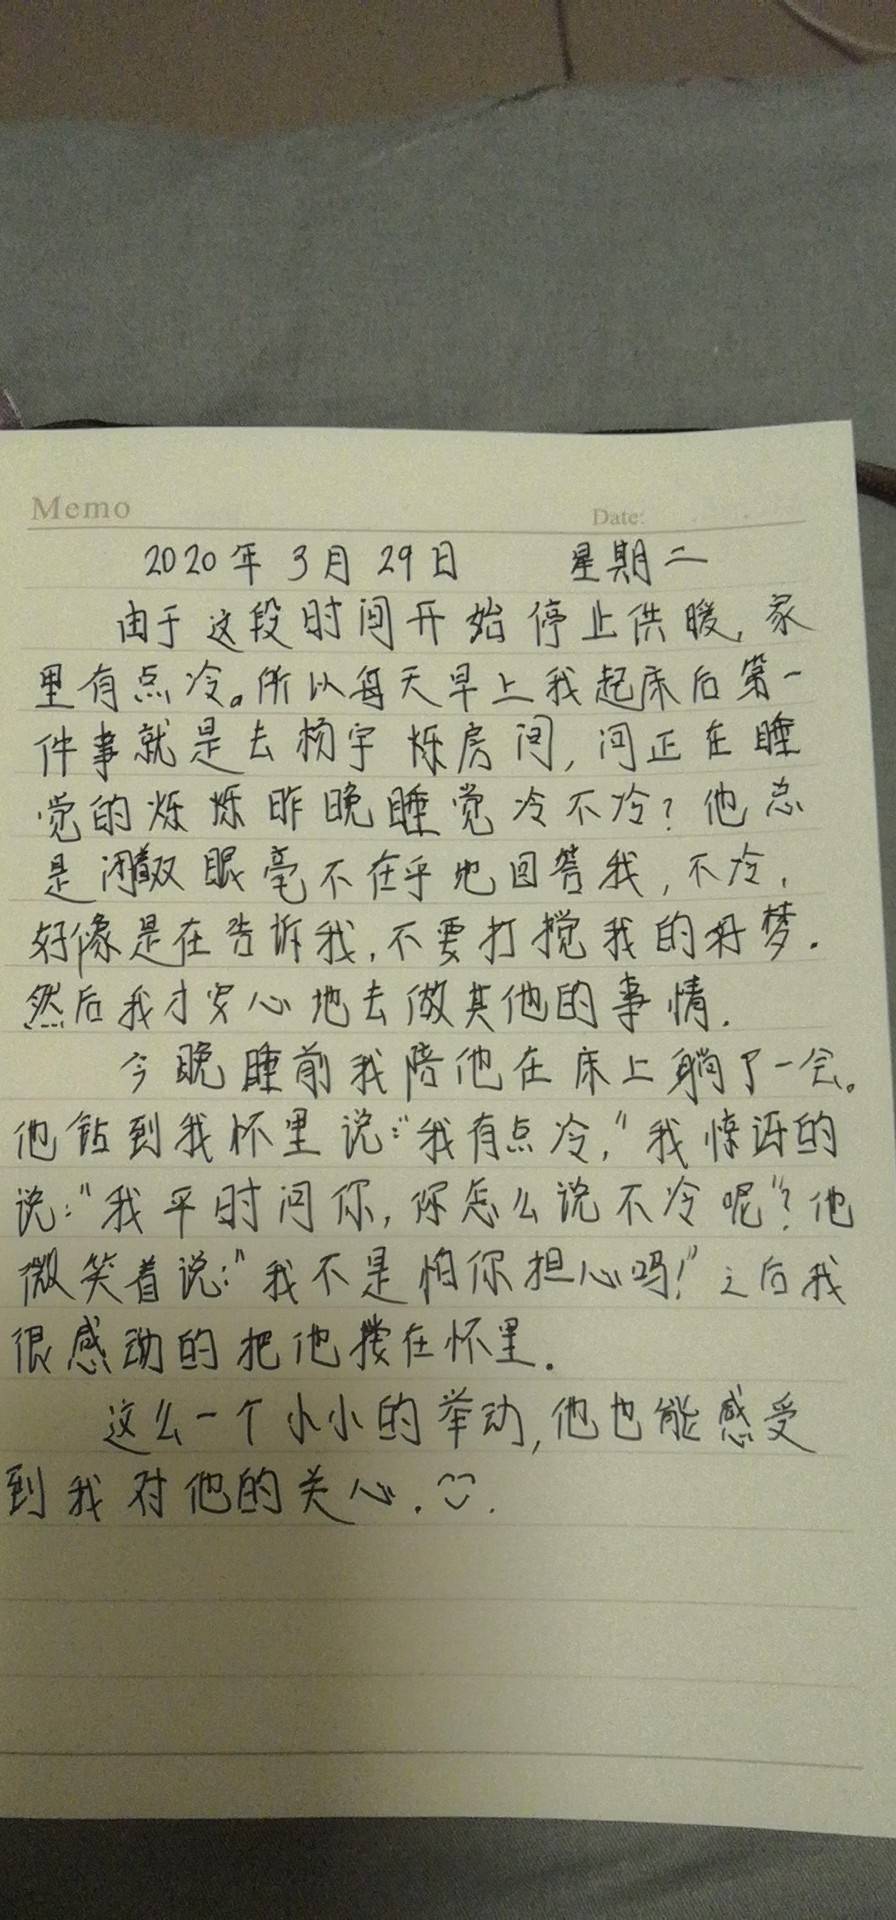 Memo
Date:
2020年3月29日 星期二
由于这段时间开始停止供暖,家
里有点冷。所以每天早上我起床后第一
件事就是去杨宇烁房间,问正在睡
觉的烁烁昨晚睡觉冷不冷?他总
是闭着双眼毫不在乎地回答我,不冷,
好像是在告诉我,不要打搅我的好梦.
然后我才安心地去做其他的事情.
今晚睡前我陪他在床上躺了一会。
他钻到我怀里说:“我有点冷,”我惊讶的
说:“我平时问你,你怎么说不冷呢”?他
微笑着说:“我不是怕你担心吗!”之后我
很感动的把他搂在怀里.
这么一个小小的举动,他也能感受
到我对他的关心.